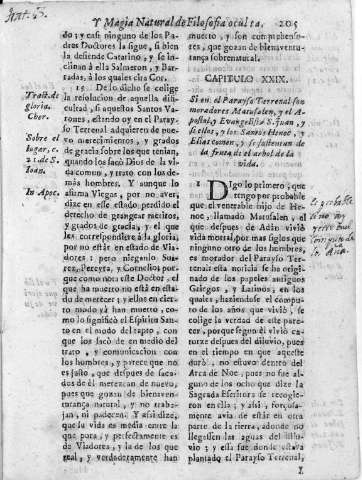 Y Magia Natural de Filosofia oculta. 205
do; y casi ninguno de los Pa-
dres Doctores la sigue, si bien
la defiende Catarino, y se in-
clinan à ella Salmeron, y Bar-
radas, à los quales cita Cor.
15 De lo dicho se colige
la resolucion de aquella difi-
cultad, si aquestos Santos Va-
rones, estando oy en el Paray-
so Terrenal adquieren de nue-
vo merecimientos, y grados
de gracia sobre los que tenian,
quando los sacò Dios de la vi-
da comun, y trato con los de-
màs hombres. Y aunque lo
afirma Viegas, por no aver,
dize en este estado perdido el
derecho de grangear meritos,
y grados de gracia; y el que
les corresponderà à la gloria,
por no estàr en estado de Via-
dores; pero nieganlo Sua-
rez, Pereyra, y Cornelios por-
que como nota este Doctor, el
que ha muerto no està en esta-
do de merecer; y ellos en cier-
to modo yà han muerto, co-
mo lo significò el Espiritu San-
to en el modo del rapto, con
que los sacò de en medio del
trato, y comunicacion con
los hombres, y parece que no
es justo, que despues de saca-
dos de èl merezcan de nuevo,
pues que gozan de bienaven-
turança natural, y no traba-
jan, ni padecen: Y assi dize,
que su vida es media entre la
que pura, y perfectamente es
de Viadores, y la de los que
real, y verdaderamente han
muerto, y son comprehenso-
res, que gozan de bienaventu-
rança sobrenatural.
CAPITULO XXIX.
Si en el Parayso Terrenal son
moradores Matusalen, y el A-
postol, y Evangelista S. Juan, y
si ellos, y los Santos Henoc, y
Elias comen, y se sustentan de
la fruta de el arbol de la
vida.
1 Digo lo primero, que
tengo por probable
que el venerable hijo de He-
noc, llamado Matusalen, el que
despues de Adàn viviò
vida mortal por mas siglos que
ninguno otro de los hombres,
es morador del Parayso Ter-
renal esta noticia se ha origi-
nado de los papeles antiguos
Griegos, y Latinos; en los
quales, haziendose el compu-
to de los años que viviò, se
colige la verdad de este pare-
cer, porque segun èl viviò ca-
torze despues del diluvio, pues
en el tiempo en que aqueste
durò, no estuvo dentro del
Arca de Noe, pues no fue al-
guno de los ocho que dize la
Sagrada Escritura se recogie-
ron en ella; y assi, forçosa-
mente avia de estàr en otra
parte de la tierra, adonde no
llegassen las aguas del dilu-
vio; y esta fue donde estava
plantado el Parayso Terrenal,
Y
Tract. de
gloria.
Cher.
Sobre el
lugar, c.
21. de S.
Ioan.
In Apoc.